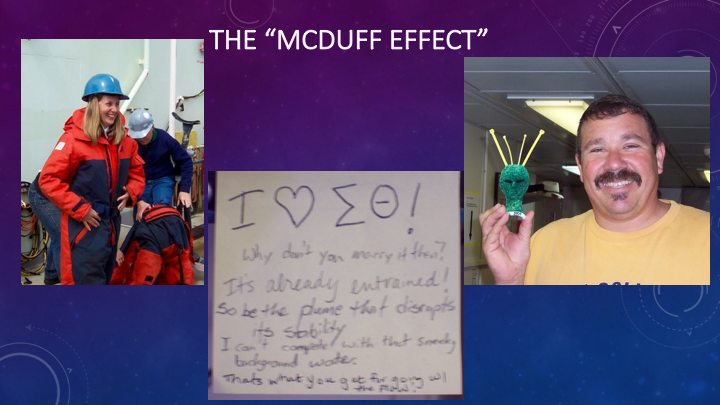 THE “MCDUFF EFFECT”
I ♡ ΣΘ!
Why don't you marry it then?
It's already entrained!
So be the plume that disrupts
its stability
I can't compete with that sneaky
background water.
Thats what you get for going w/
the flow!